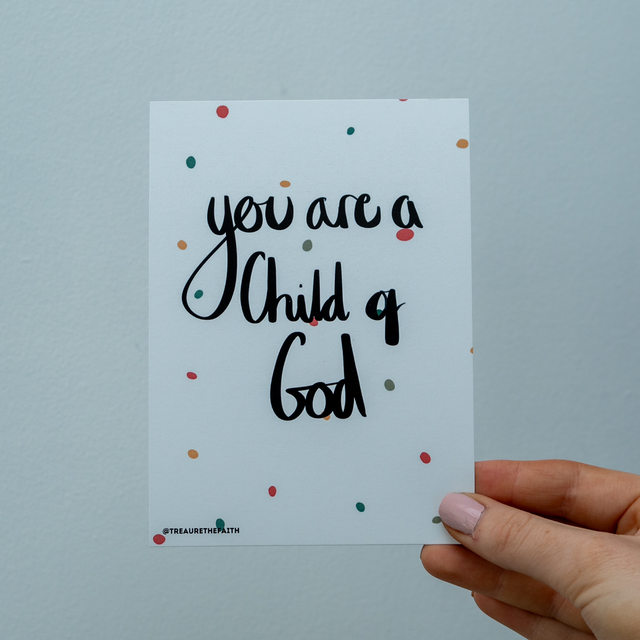 you are a
Child of
God
@TREAURETHEFAITH